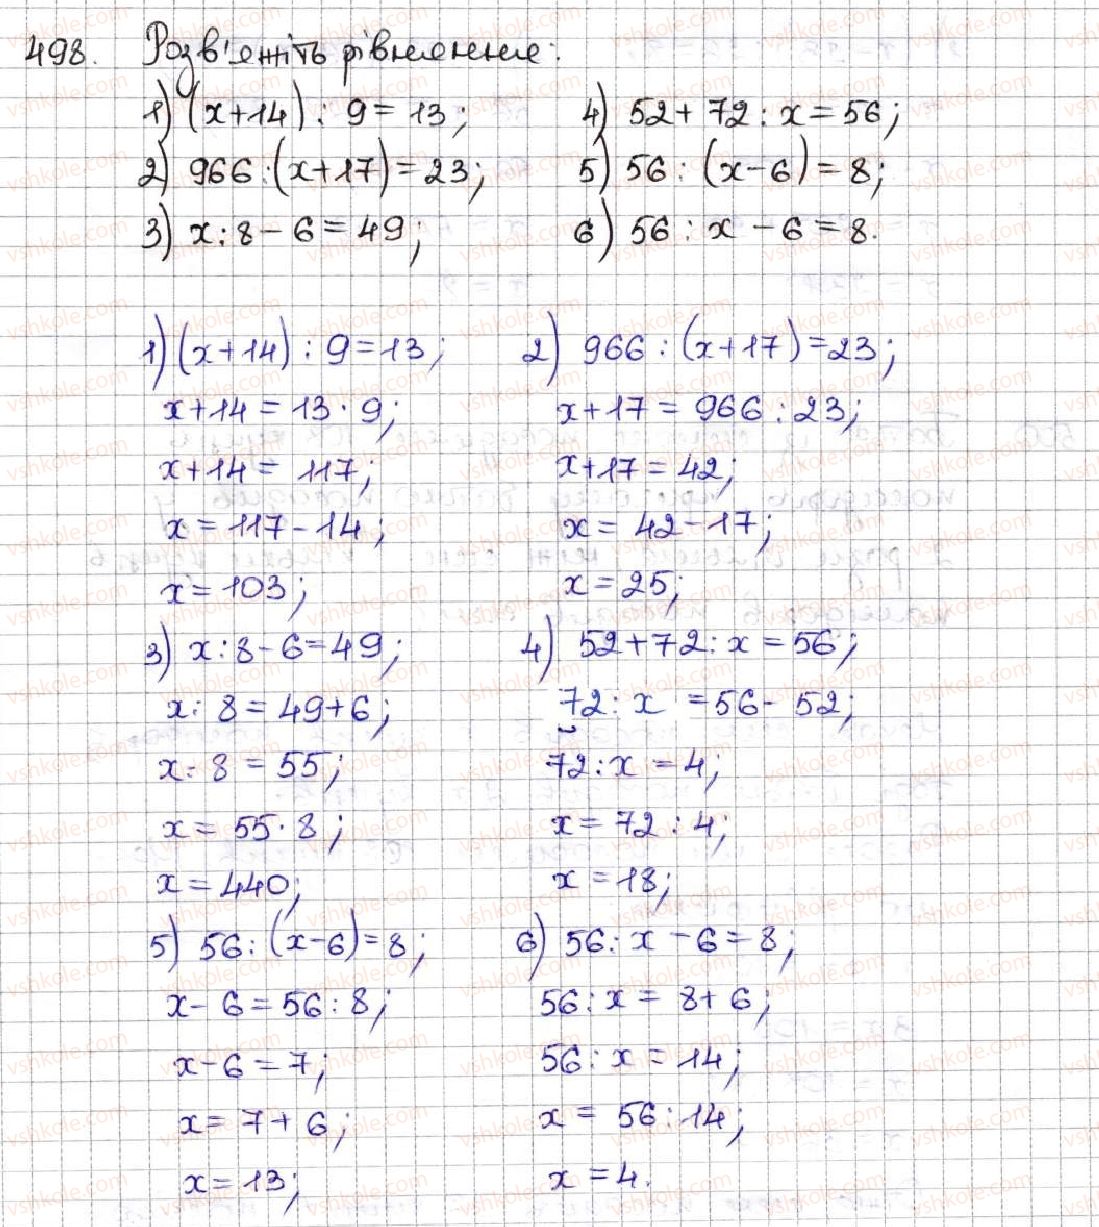 498. Розв'яжіть рівняння:
1) (x+14) : 9 = 13; 4) 52 + 72 : x = 56;
2) 966 : (x+17) = 23; 5) 56 : (x-6) = 8;
3) x : 8 - 6 = 49; 6) 56 : x - 6 = 8.
1) (x+14) : 9 = 13; 2) 966 : (x+17) = 23;
x+14 = 13 · 9; x+17 = 966 : 23;
x+14 = 117; x+17 = 42;
x = 117 - 14; x = 42 - 17;
x = 103; x = 25;
3) x : 8 - 6 = 49; 4) 52 + 72 : x = 56;
x : 8 = 49 + 6; 72 : x = 56 - 52;
x : 8 = 55; 72 : x = 4;
x = 55 · 8; x = 72 : 4;
x = 440; x = 18;
5) 56 : (x-6) = 8; 6) 56 : x - 6 = 8;
x - 6 = 56 : 8; 56 : x = 8 + 6;
x - 6 = 7; 56 : x = 14;
x = 7 + 6; x = 56 : 14;
x = 13; x = 4.